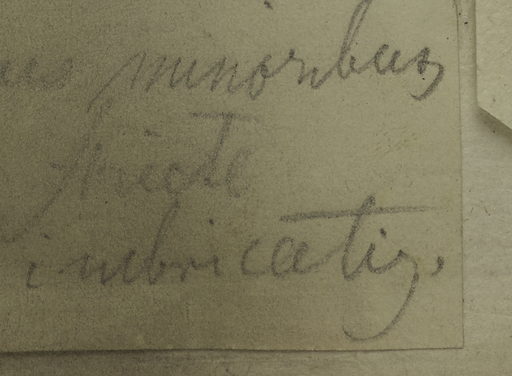 minoribus
stricte
imbricatis.